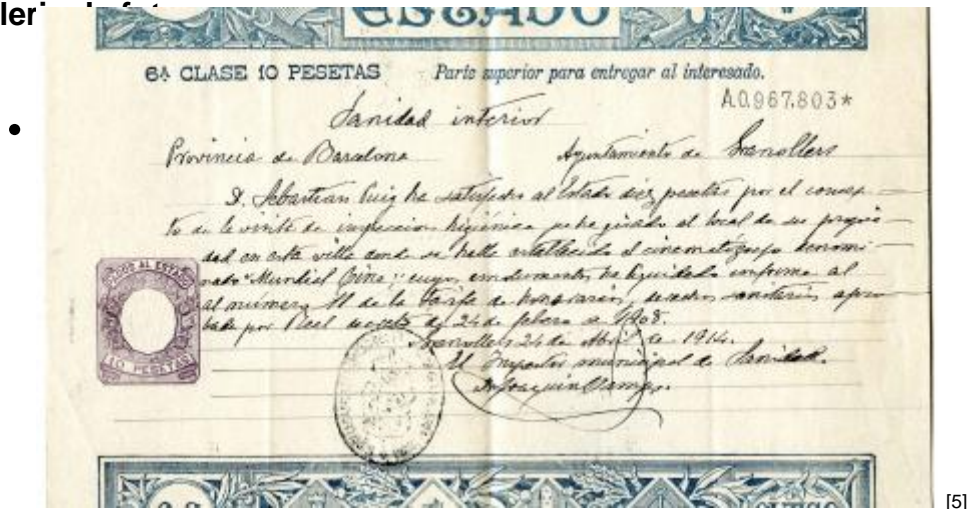 ESTADO
6ª CLASE 10 PESETAS Parte superior para entregar al interesado.
A0,967,803*
Sanidad interior
Provincia de Barcelona Ayuntamiento de Granollers
D. Sebastian Puig ha satisfecho al Estado diez pesetas por el concep-
to de la visita de inspeccion higiénica girado al local de su propie-
dad en esta villa donde se halla establecido el cinematógrafo denomi-
nado "Mundial Cine", cuyos emolumentos ha liquidado conforme al
al número 11 de la tarifa de honorarios, derechos sanitarios apro-
bada por Real de 24 de febrero de 1908.
Granollers 24 de Abril de 1914.
El Inspector municipal de Sanidad.
Joaquin
AL ESTADO
10 PESETAS
[5]